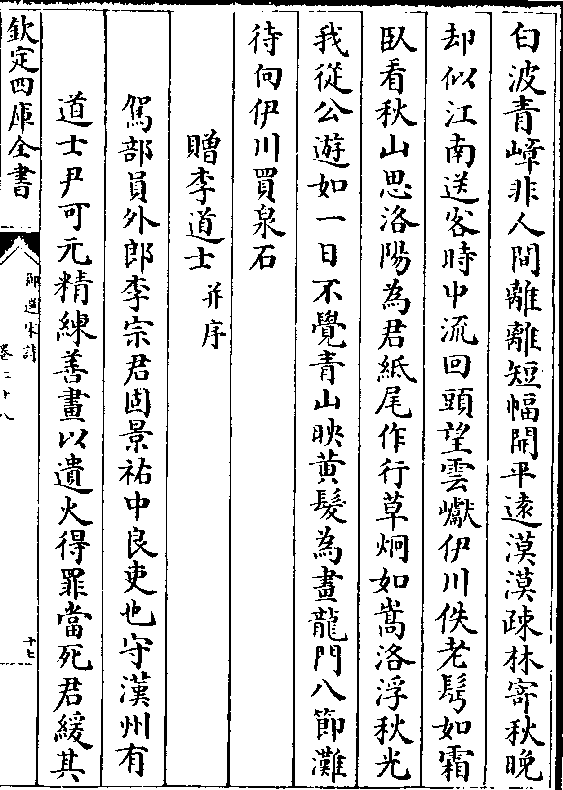 白波青嶂非人間離離短幅開平遠漠漠疎林寄秋晚
却似江南送客時中流回頭望雲巘伊川佚老鬢如霜
臥看秋山思洛陽為君紙尾作行草炯如嵩洛浮秋光
我從公遊如一日不覺青山映黄髮為畫龍門八節灘
待向伊川買泉石
贈李道士并序
駕部員外郎李宗君固景祐中良吏也守漢州有
道士尹可元精練善畫以遺火得罪當死君緩其
欽定四庫全書
御選宋詩
卷二十八
十七